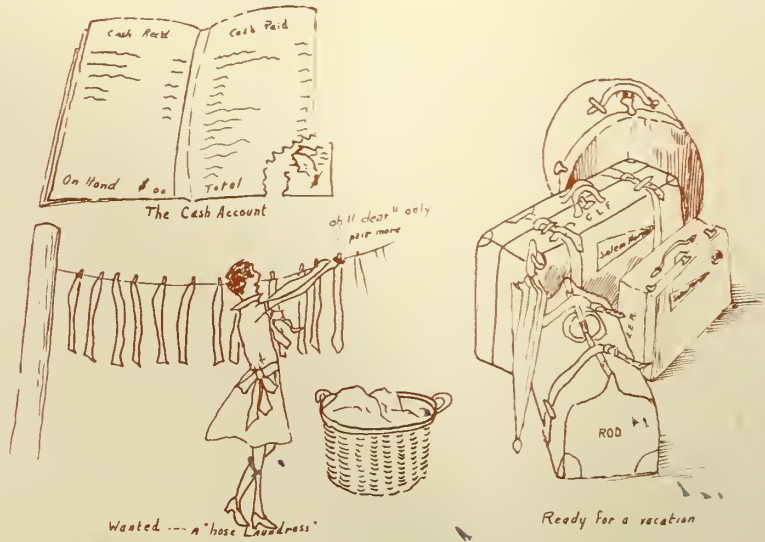 Cash Rec'd
Cash Paid
On Hand $ 00
Total
The Cash Account
oh "dear" only
pair more
Wanted --- A "hose Laundress"
G.L.F.
Salem
R.
ROD
Ready for a vacation